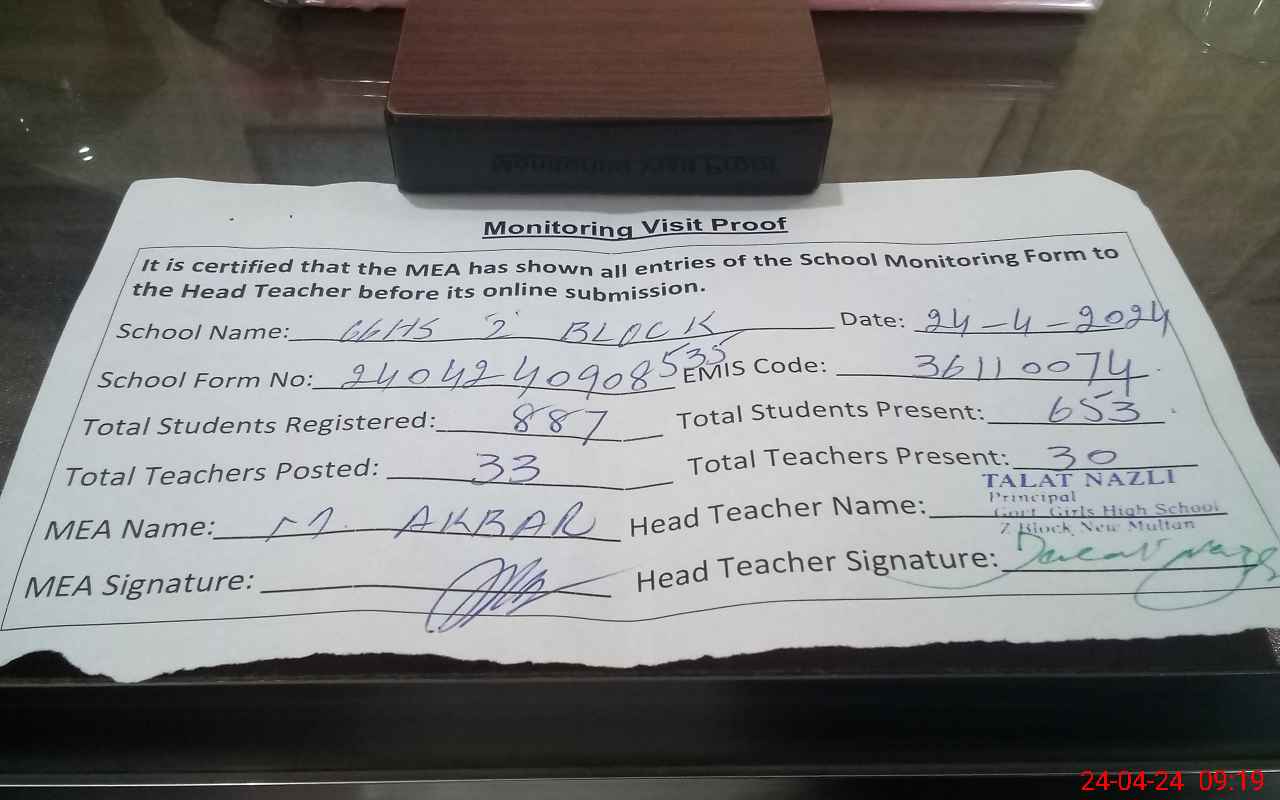 Monitoring Visit Proof
It is certified that the MEA has shown all entries of the School Monitoring Form to
the Head Teacher before its online submission.
School Name: GGHS 'Z' BLOCK Date: 24-4-2024
School Form No: 2404240908535 EMIS Code: 36110074
Total Students Registered: 887 Total Students Present: 653
Total Teachers Posted: 33 Total Teachers Present: 30
TALAT NAZLI
Principal
MEA Name: M. AKBAR Head Teacher Name: Govt Girls High School
Z Block New Multan
MEA Signature: Head Teacher Signature: Talat Nazli
24-04-24 09:19